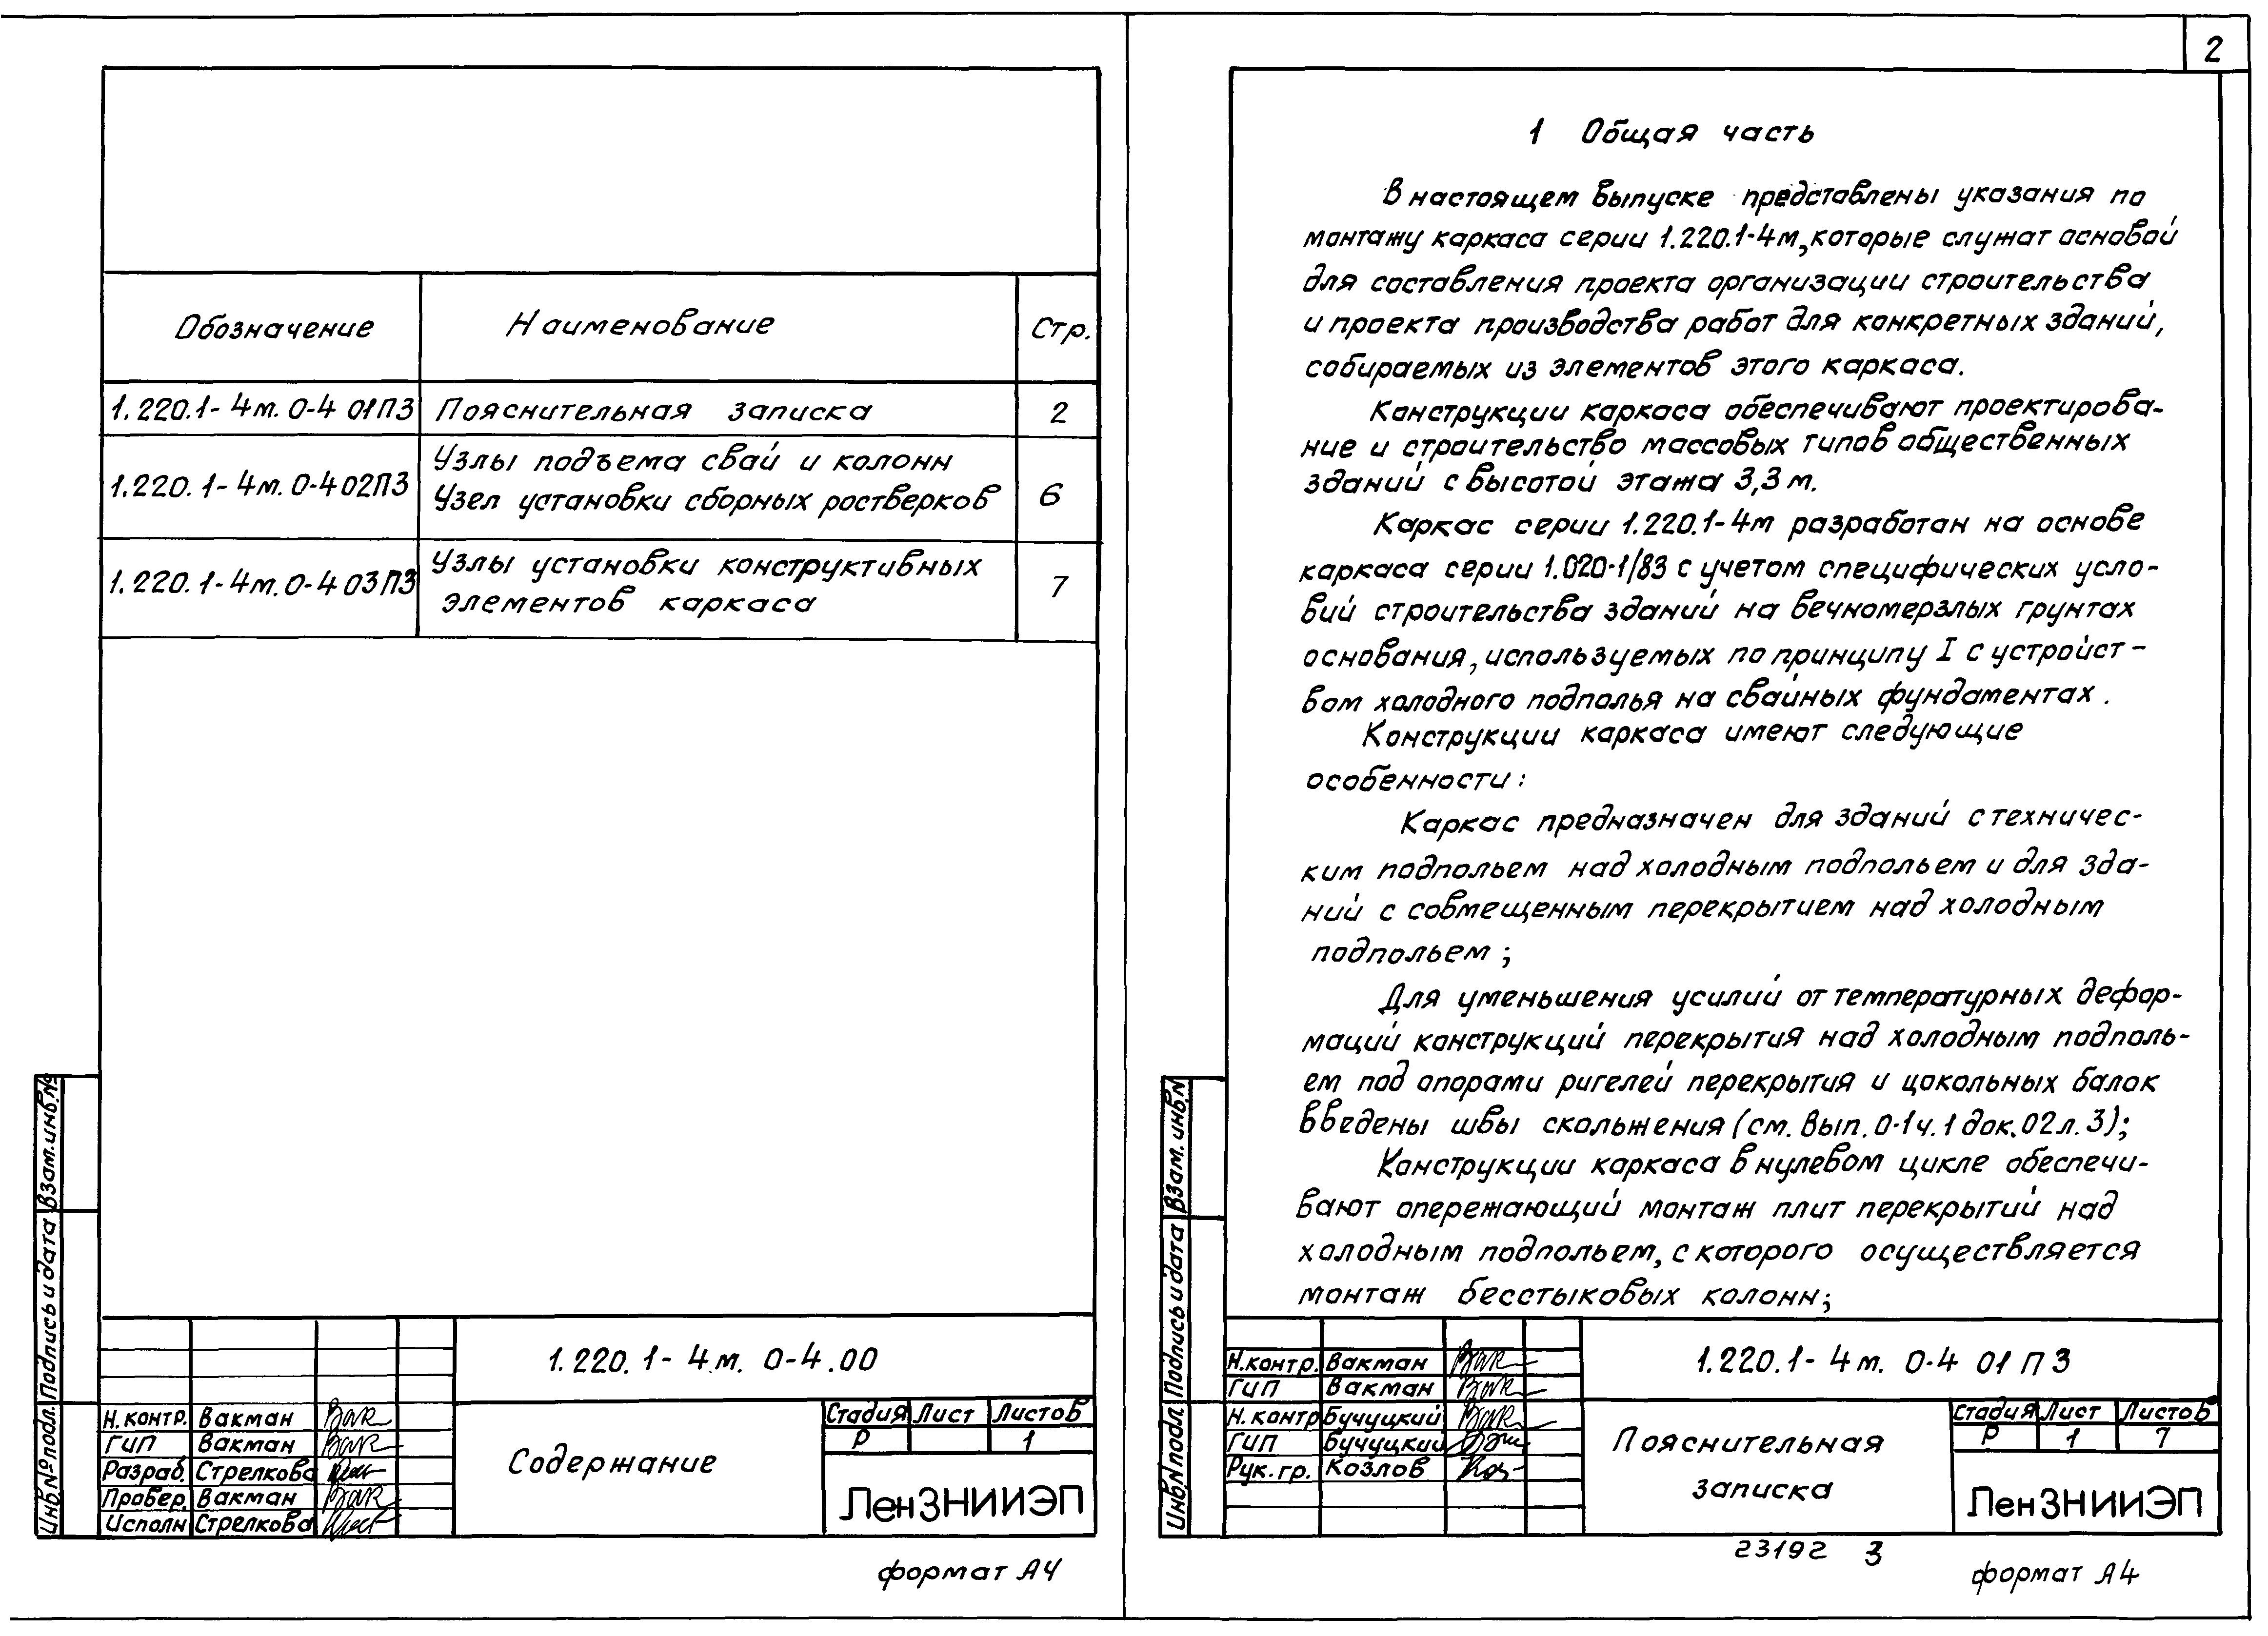 Обозначение
Наименование
Стр.
1.220.1-4м.0-4 01ПЗ
Пояснительная записка
2
1.220.1-4м.0-4 02ПЗ
Узлы подъема свай и колонн
Узел установки сборных ростверков
6
1.220.1-4м.0-4 03ПЗ
Узлы установки конструктивных
элементов каркаса
7
Взам.инв.№
Подпись и дата
Инв.№подл.
1.220.1-4м. 0-4.00
Н.контр. Вакман
ГИП Вакман
Разраб. Стрелкова
Провер. Вакман
Исполн Стрелкова
Содержание
Стадия Лист Листов
Р 1
ЛенЗНИИЭП
формат А4
2
1 Общая часть
В настоящем выпуске представлены указания по
монтажу каркаса серии 1.220.1-4м, которые служат основой
для составления проекта организации строительства
и проекта производства работ для конкретных зданий,
собираемых из элементов этого каркаса.
Конструкции каркаса обеспечивают проектирова-
ние и строительство массовых типов общественных
зданий с высотой этажа 3,3 м.
Каркас серии 1.220.1-4м разработан на основе
каркаса серии 1.020-1/83 с учетом специфических усло-
вий строительства зданий на вечномерзлых грунтах
основания, используемых по принципу I с устройст-
вом холодного подполья на свайных фундаментах.
Конструкции каркаса имеют следующие
особенности:
Каркас предназначен для зданий с техничес-
ким подпольем над холодным подпольем и для зда-
ний с совмещенным перекрытием над холодным
подпольем;
Для уменьшения усилий от температурных дефор-
маций конструкций перекрытия над холодным подполь-
ем под опорами ригелей перекрытия и цокольных балок
введены швы скольжения (см. вып. 0-1 ч. 1 док. 02 л. 3);
Конструкции каркаса в нулевом цикле обеспечи-
вают опережающий монтаж плит перекрытий над
холодным подпольем, с которого осуществляется
монтаж бесстыковых колонн;
Взам.инв.N
Подпись и дата
Инв.N подл.
Н.контр. Вакман
ГИП Вакман
Н.контр Бучуцкий
ГИП Бучуцкий
Рук.гр. Козлов
1.220.1-4м. 0-4 01 ПЗ
Пояснительная
записка
Стадия Лист Листов
Р 1 7
ЛенЗНИИЭП
23192 3
формат А4